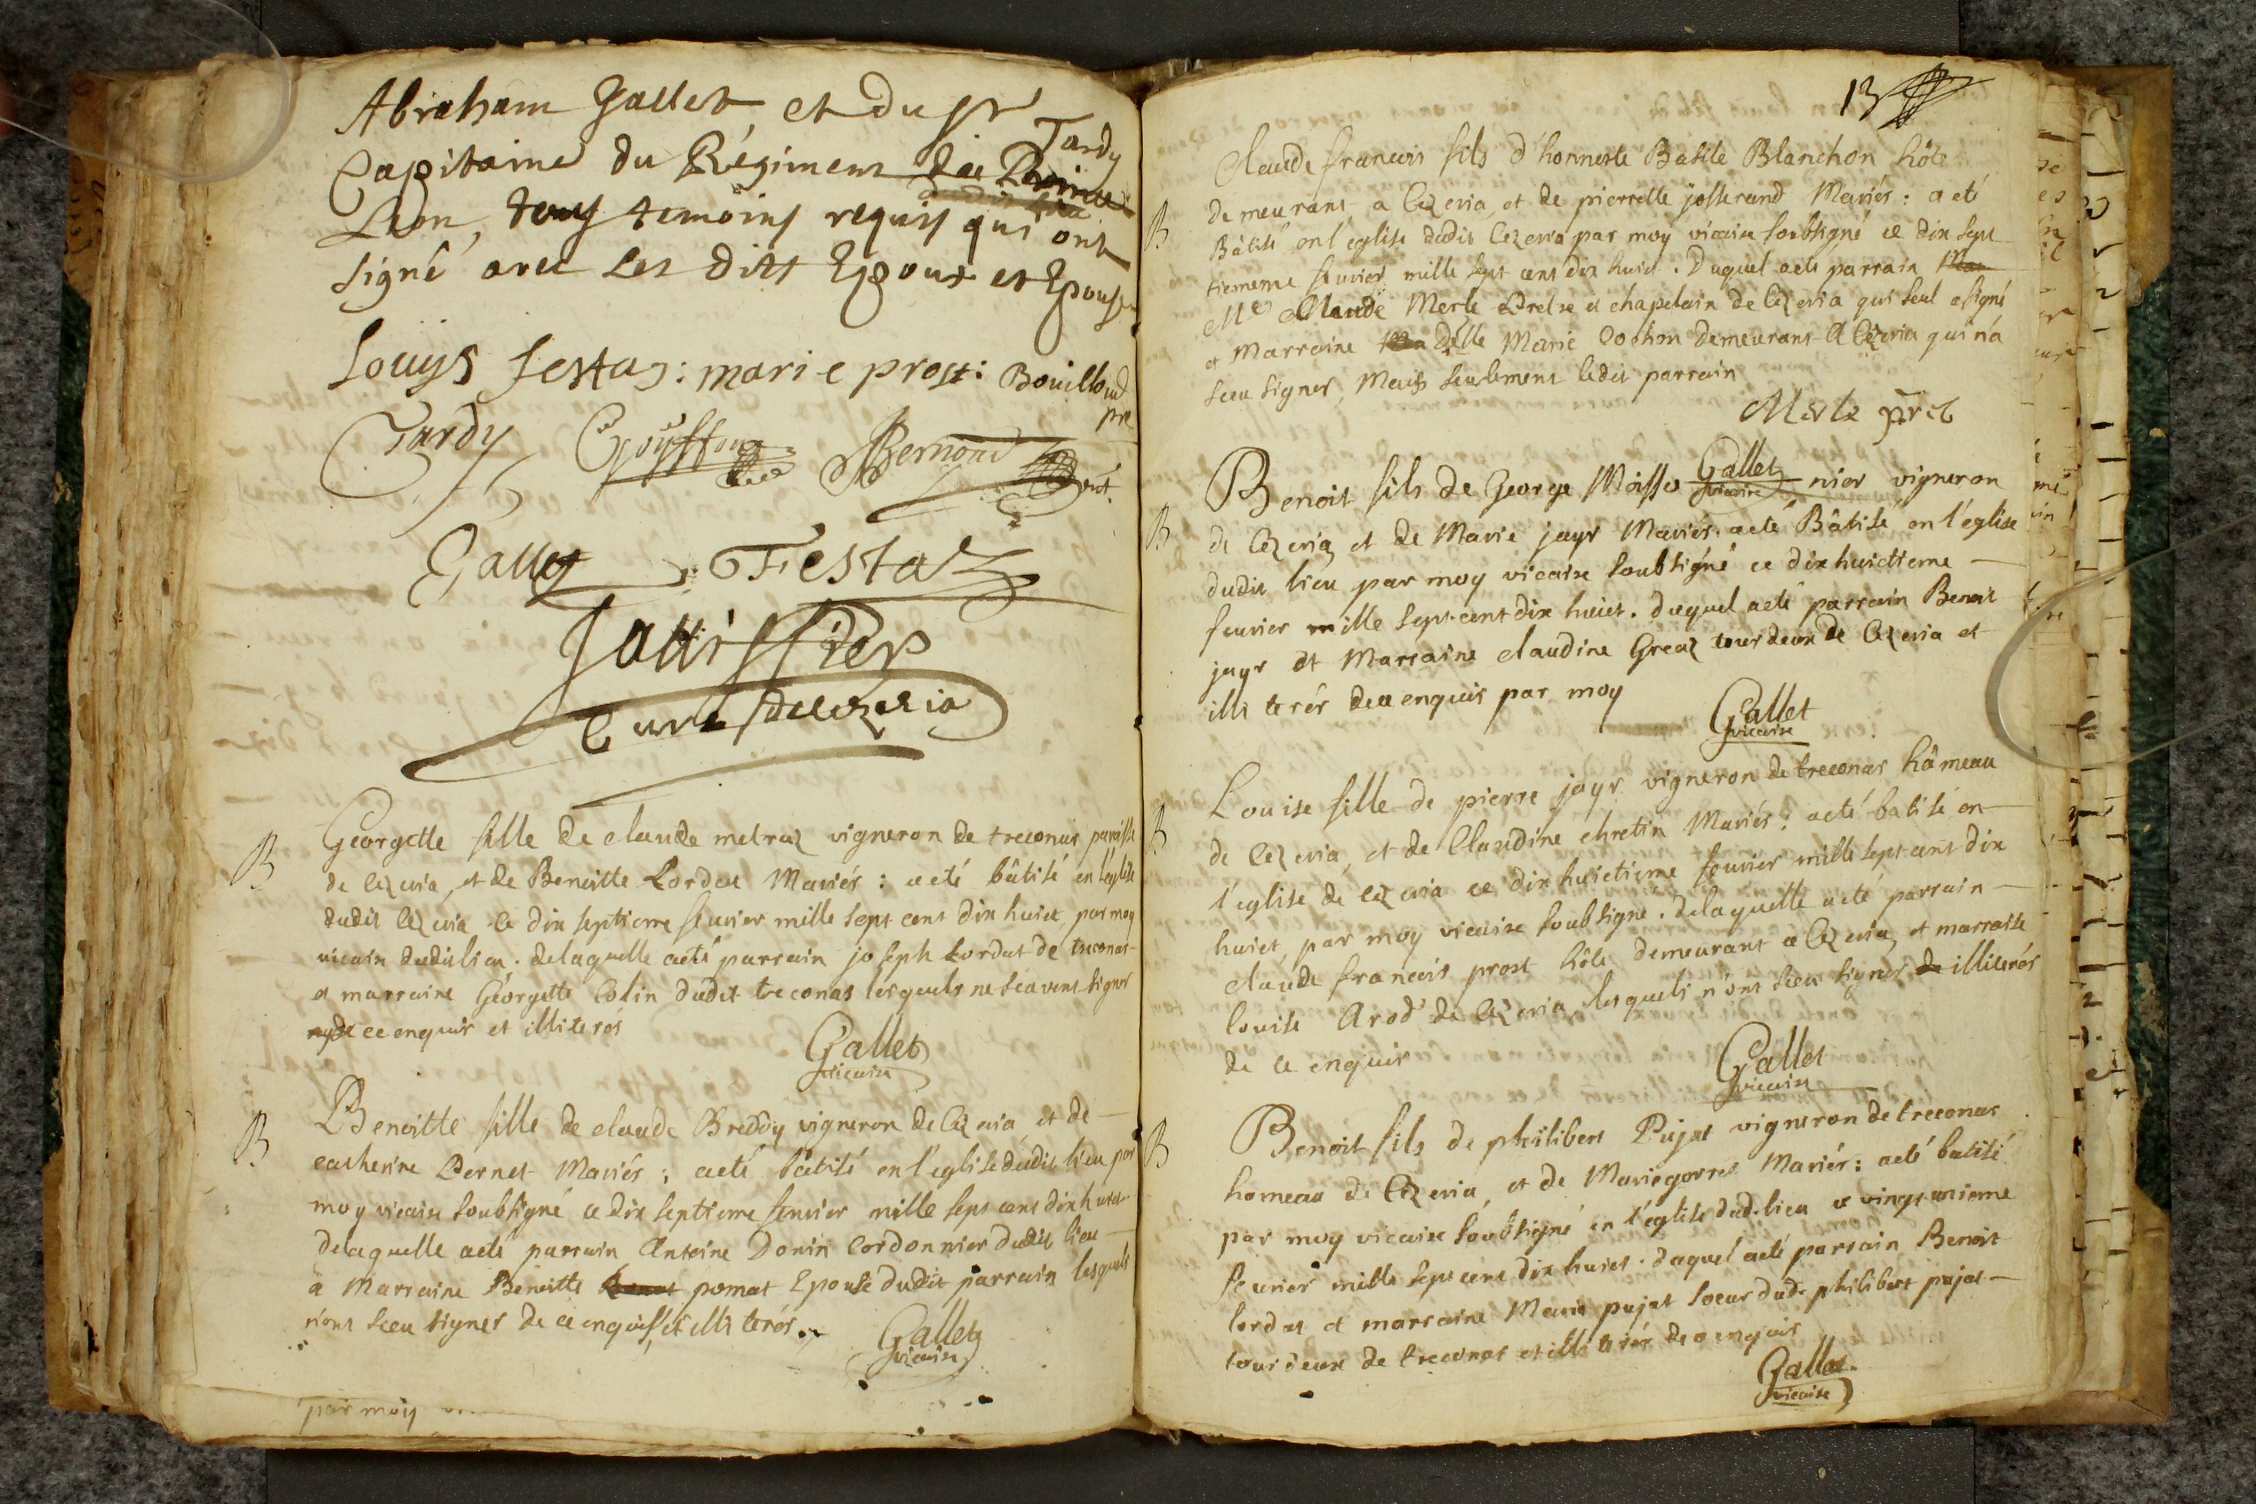 Abraham Gallet, et du sr Tardy
Capitaine du Régiment de
Lion, tous temoins requis qui ont
signé avec les dits Epoux et Epouse
Louys festaz: mari e prost: Bouilloud
pre
Tardy Goyffon Bernond
Gallet Festaz
Tattissier
Curé de cezeria
B
Georgette fille de claude metraz vigneron de treconas paroisse
de cezeria, et de Benoitte Lordat Mariés: a eté bâtisé en l'église
dudit cezeria ce dix septieme feuvier mille sept cens dix huict, par moy
vicaire dudit lieu. delaquelle a eté parrain joseph Lordat de treconas
et marraine Georgette Colin dudit treconas lesquels ne scavent signer
de ce enquis et illiterés
Gallet
vicaire
B
Benoitte fille de claude Breddy vigneron de Cezeria, et de
catherine Pernet Mariés: a eté bâtisé en l'eglise dudit lieu par
moy vicaire soubsigné ce dix septieme feuvier mille sept cens dix huict
delaquelle a eté parrain Antoine Donin Cordonnier dudit lieu
et Marraine Benoitte pomat Epouse dudit parrain lesquels
n'ont sceu signer de ce enquis, et illiterés.
Gallet
vicaire
par moy
13
B
Claude francois fils d'honneste Batite Blanchon hôte
demeurant a Cezeria, et de pierrette josserand Mariés: a eté
Bâtisé en l'eglise dudit Cezeria par moy vicaire soubsigné ce dix sept
tiememe feuvier mille sept cens dix huict. Duquel a eté parrain
Mre Claude Merle Prestre et chapelain de Cezeria qui seul a signé
et Marraine Delle Marie Cochon demeurant a Cezeria qui n'a
sceu signer, Mais seulement ledit parrain
Merle pret
Gallet
vicaire
B
Benoit fils de George Moissonnier vigneron
de Cezeria, et de Marie jayr Mariés. a eté Bâtisé en l'eglise
dudit lieu par moy vicaire soubsigné ce dix huictieme
feuvier mille sept cent dix huict. duquel a eté parrain Benoit
jayr et Marraine claudine Greaz tous deux de Cezeria et
illiterés de ce enquis par moy
Gallet
vicaire
B
Louise fille de pierre jayr vigneron de treconas hâmeau
de Cezeria, et de Claudine chretin Mariés: a eté batisé en
l'eglise de cezeria ce dix huictieme feuvier mille sept cens dix
huict, par moy vicaire soubsigné. delaquelle a eté parrain
claude francois prost hôte demeurant a Cezeria, et marraine
louise Arod de Cezeria lesquels n'ont sceu signer de illiterés
de ce enquis
Gallet
vicaire
B
Benoit fils de philibert Pujat vigneron de treconas
hameau de Cezeria, et de Marie gorrel Mariés: a eté batisé
par moy vicaire soubsigné en l'eglise dud. lieu ce vingt unieme
feuvier mille sept cens dix huict. duquel a eté parrain Benoit
lordat et marraine Marie pujat soeur dud. philibert pujat
tous deux de treconas et illiterés de ce enquis
Gallet
vicaire